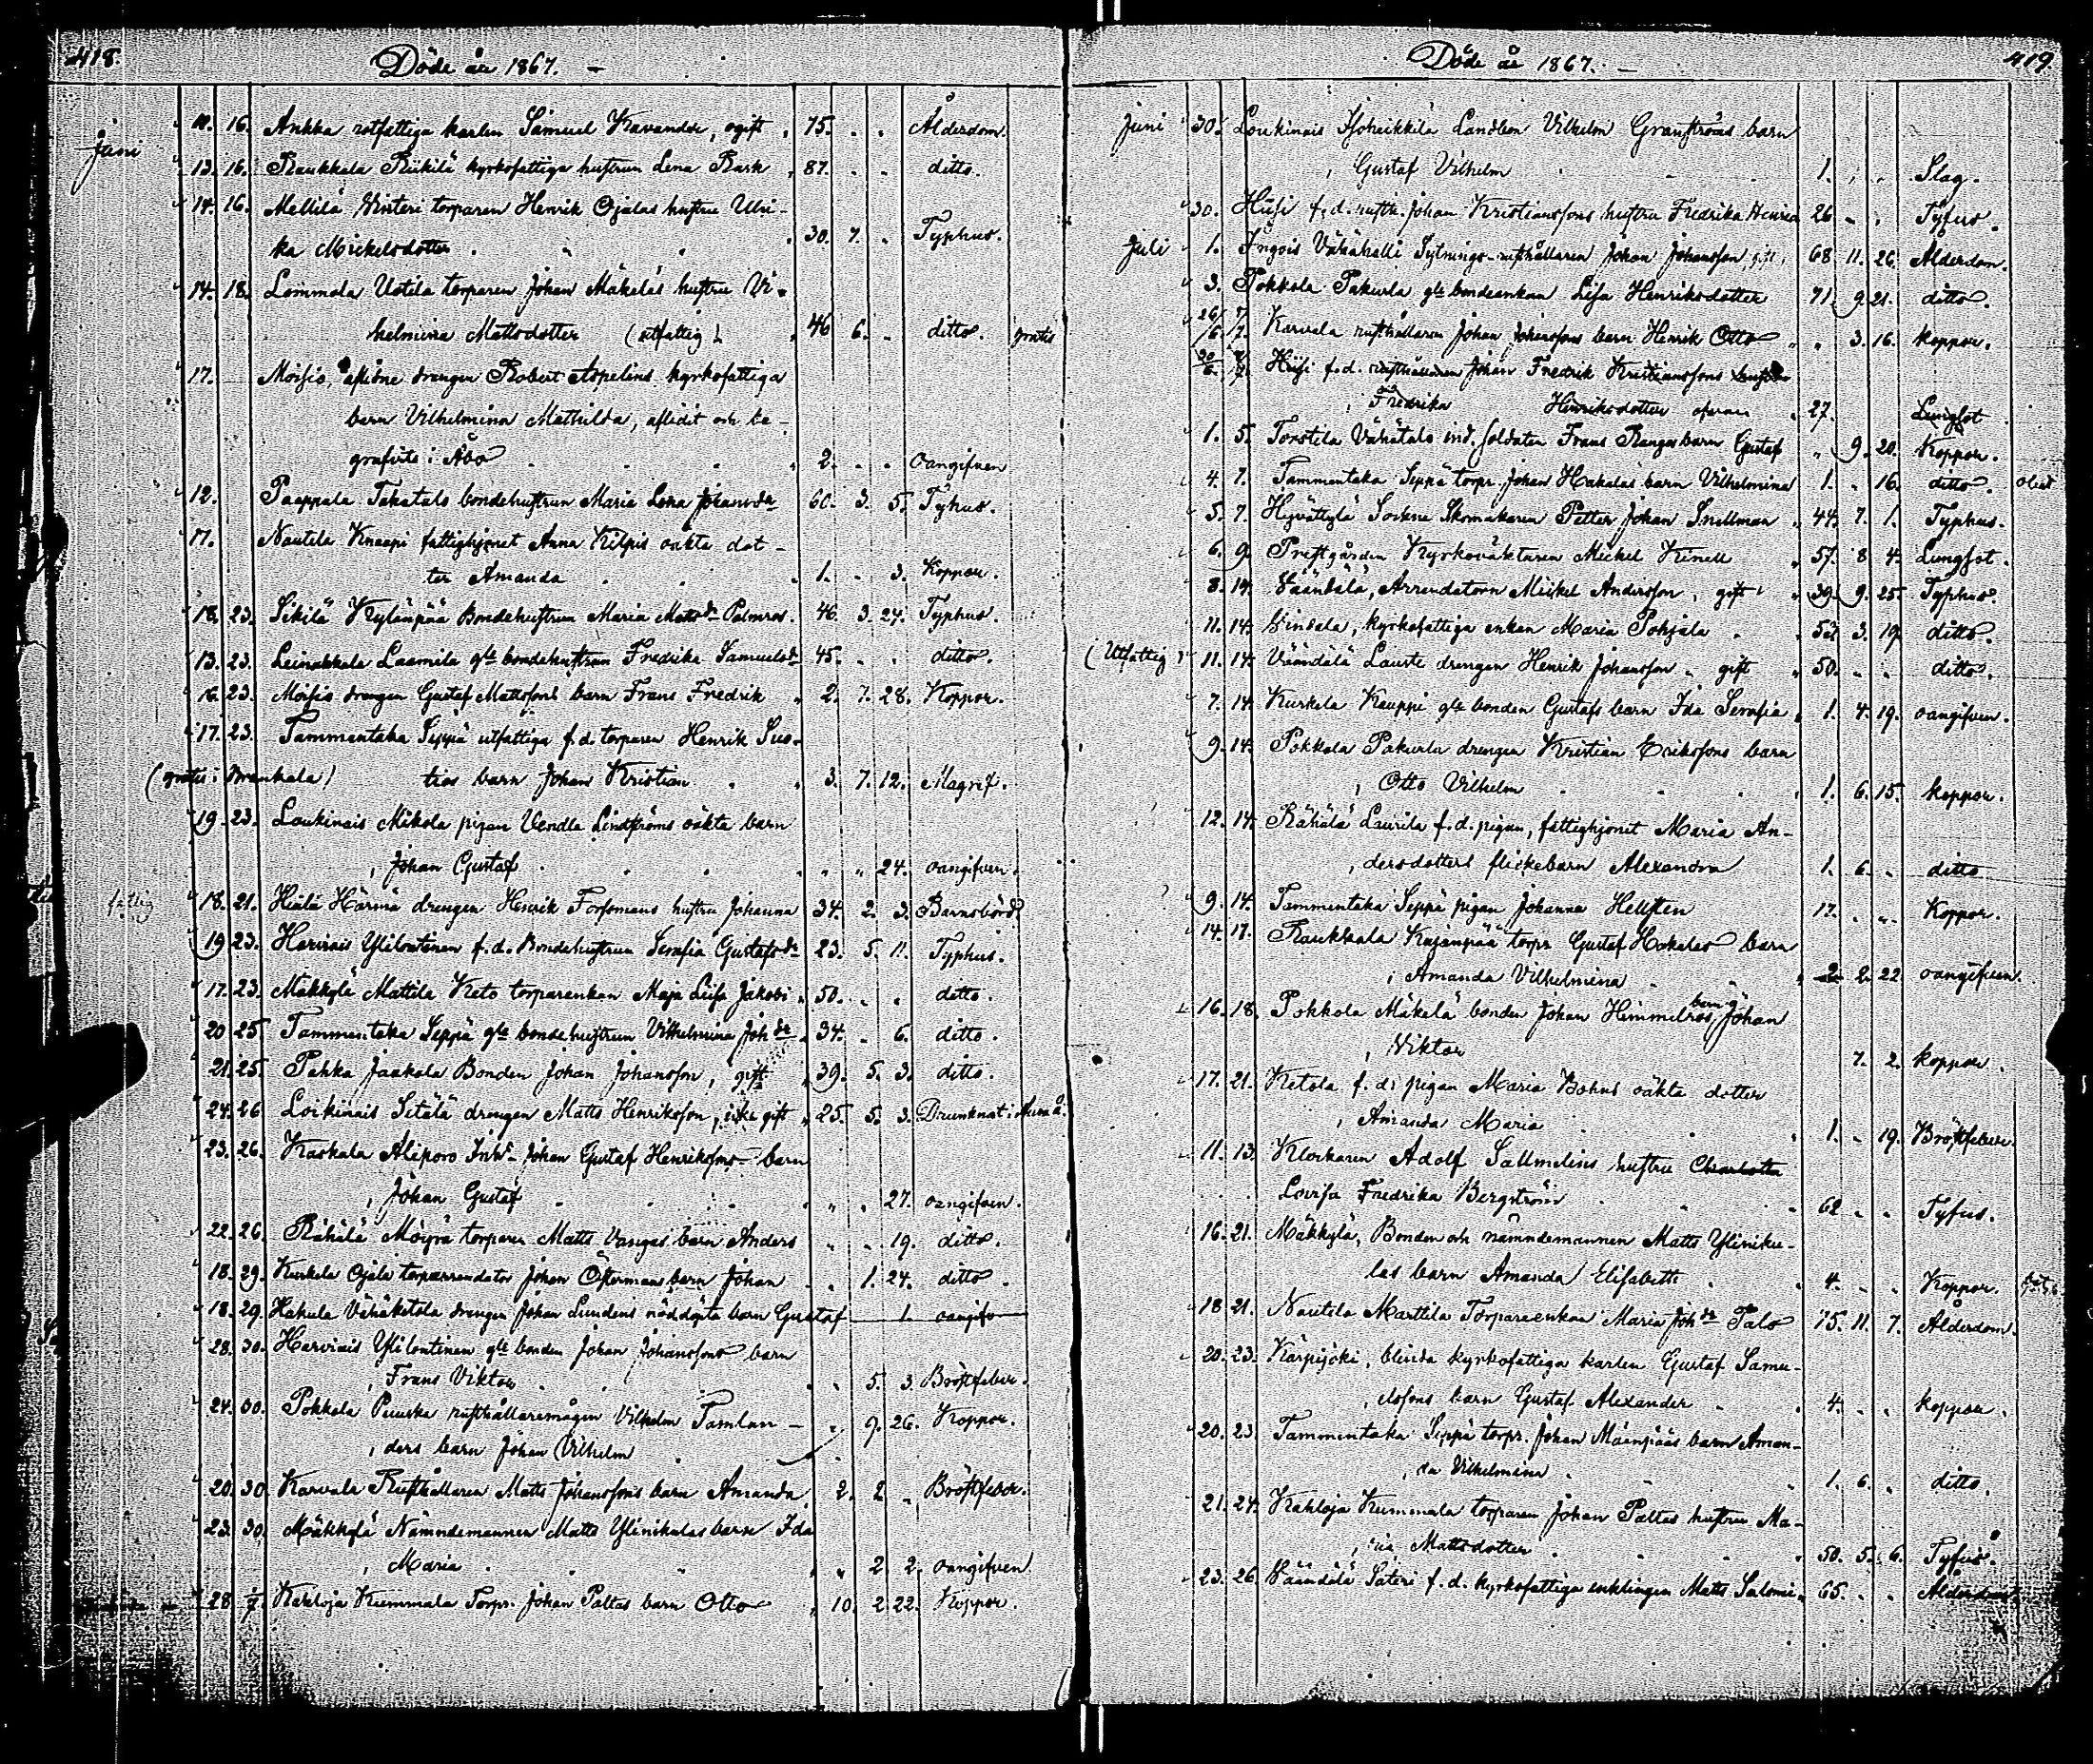 418.
Döde år 1867. –
Juni 11. 16. Ankka rotfattiga karlen Samuel Kavander, ogift 75. Ålderdom.
13. 16. Raukkala Riikilä kyrkofattiga hustrun Lena Rask 87. ditto.
14. 16. Mellilä Winteri torparen Henrik Ojalas hustru Ulri-
ka Mickelsdotter 30. 7. Typhus.
14. 18. Lommola Uotila torparen Johan Mäkeläs hustru Vi-
helmina Mattsdotter (utfattig) 46 6. ditto. gratis
17. Moisio, aflidne drengen Robert Aspelins kyrkofattiga
barn Vilhelmina Mathilda, aflidit och be-
grafvits i Åbo 2. Oangifven
12. Paappala Takatalo bondehustrun Maria Lena Johansdr 60. 3. 5. Tyhus.
17. Nautela Knaapi fattighjonet Anna Kilpis oäkta dot-
ter Amanda 1. 3. Koppor.
18. 23. Sikilä Kylänpää Bondehustrun Maria Mattsdr Palmros. 46. 3. 24. Typhus.
13. 23. Leinakkala Laamila gle bondehustrun Fredika Samuelsdr 45. ditto.
16. 23. Moisio drengen Gustaf Mattssons barn Frans Fredrik 2. 7. 28. Koppor.
17. 23. Tammentaka Seppä utfattiga f.d. torparen Henrik Sus-
(gratis i Prunkala) ties barn Johan Kristian 3. 7. 12. Magrif.
19. 23. Loukinais Mikola pigan Vendla Lindströms oäkta barn
Johan Gustaf 24. oangifven.
fattig 18. 21. Heilä Härmä drengen Henrik Forsomans hustru Johanna 34. 2. 3. Barnsbörd
19 23. Harvinais Ylilontinen f.d. Bondehustrun Serafia Gustafsdr 23. 5. 11. Typhus.
17. 23. Mäkkylä Mattila Keto torparenkan Maja Lisa Jakobs 50. ditto.
20 25 Tammentaka Seppä gle bondehustrun Vilhelmina Johdr 34. 6. ditto.
21. 25. Pahka Jaakola Bonden Johan Johansson, gift 39. 5. 3. ditto.
24. 26 Loikinais Sitälä drengen Matts Henriksson, icke gift 25. 5. 3. Drunknat i Aura å.
23. 26. Kaskala Aliporo Inh. Johan Gustaf Henrikssons barn
Johan Gustaf 27. oangifven.
22. 26. Rähälä Möyrä torparen Matts Vangas barn Anders 19. ditto.
18. 29. Kurkela Ojala torparrendator Johan Östermans barn Johan 1. 24. ditto.
18. 29. Hakula Vähäketola drengen Johan Lundens nöddöpta barn Gustaf 1. oangifv
28. 30. Harvinais Ylilontinen gle bonden Johan Johanssons barn
Frans Viktor 5. 3. Bröstfeber.
24. 30. Pokkola Penska rusthållaremågen Vilhelm Tamlan-
ders barn Johan Vilhelm 9. 26. Koppor.
20. 30. Karvala Rusthållaren Matts Johanssons barn Amanda 2. 2. Bröstfeber.
23. 30. Mäkkylä Nämndemannen Matts Ylinikulas barn Ida
Maria 2. 2. oangifven
28 7. Kahloja Kummala Torpr. Johan Paltas barn Otto 10. 2. 22. Koppor.
419
Döde år 1867. –
Juni 30. Loukinais Isoheikkilä Landbon Vilhelm Granströms barn
Gustaf Vilhelm 1. Slag.
30. Hiisi f.d. rusth. Johan Kristianssons hustru Fredrika Henrics 26 Tyfus.
Juli 1. Ingois Vähähalli Sytnings-rusthållaren Johan Johansson, gift 68 11. 26. Ålderdom.
3. Pokkola Pakurla gle bondeankan Lisa Henriksdotter 71. 9. 21. ditto.
26/6 7/7. Karvala rusthållaren Johan Johanssons barn Henrik Otto 3. 16. koppor.
30/6 7. Hiisi f.d. rusthållaren Johan Fredrik Kristianssons hustru
Fredrika Henriksdotter ofvan 27. Lungsot
1. 5. Torstila Vähätalo ind. soldaten Frans Rangas barn Gustaf 9. 20. Koppor.
4. 7. Tammentaka Seppä torpr. Johan Hakalas barn Vilhelmina 1. 16. ditto.
5. 7. Hyvättylä Sockne Skomakaren Petter Johan Snellman 44. 7. 1. Typhus.
6. 9. Prestgården Kyrkoväktaren Mickel Kinell 57. 8 4. Lungsot.
8. 14. Väändälä, Arrendatorn Mickel Andersson, gift 39. 9. 25. Typhus.
11. 14. Vindala, kyrkofattiga enkan Maria Pohjala 53. 3. 19. ditto.
(Utfattig) 11. 14. Väändälä Lauste drengen Henrik Johansson gift 50. ditto.
7. 14. Kurkela Kauppi gle bonden Gustafs barn Ida Serafia 1. 4. 19. oangifven.
9. 14. Pokkola Pakurla drengen Kristian Erikssons barn
Otto Vilhelm 1. 6. 15. koppor.
12. 14. Rähälä Laurila f.d. pigan, fattighjonet Maria An-
dersdotters flickebarn Alexandra 1. 6. ditto
9. 14. Tammentaka Seppä pigan Johanna Hellsten 17. Koppor.
14. 17. Raukkala Kujanpää torpr Gustaf Hakalas barn
Amanda Vilhelmina 2. 2. 22 oangifven.
16. 18. Pokkola Mäkelä bonden Johan Himmelros barn Johan
Viktor 7. 2. koppor.
17. 21. Ketola f.d. pigan Maria Bohns oäkta dotter
Amanda Maria 1. 19. Bröstfeber.
11. 13. Klockaren Adolf Sallmelius hustru Charlotta
Lovisa Fredrika Bergström 62 Tyfus.
16. 21. Mäkkylä, Bonden och nämndemannen Matts Yliniku-
las barn Amanda Elisabeth 4. Koppor.
18 21. Nautela Marttila Torpareenkan Maria Johdr Talo 75. 11. 7. Ålderdom.
20. 23. Karpijoki, blinda kyrkofattiga karlen Gustaf Samu-
elssons barn Gustaf Alexander 4. koppor.
20. 23. Tammentaka Seppä torpr. Johan Mäenpääs barn Aman-
da Vilhelmina 1. 6. ditto.
21. 24. Kahloja Kummala torparen Johan Paltas hustru Ma-
ria Mattsdotter 50. 5. 6. Tyfus.
23. 26. Väändälä Säteri f.d. kyrkofattiga enklingen Matts Salomi 65. Ålderdom